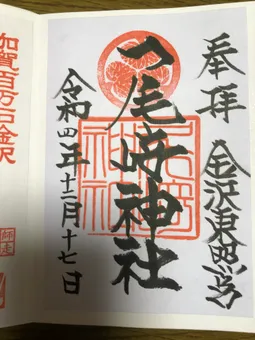 奉拝
金沢東照宮
尾﨑神社
令和四年十二月十七日
加賀百万石金沢